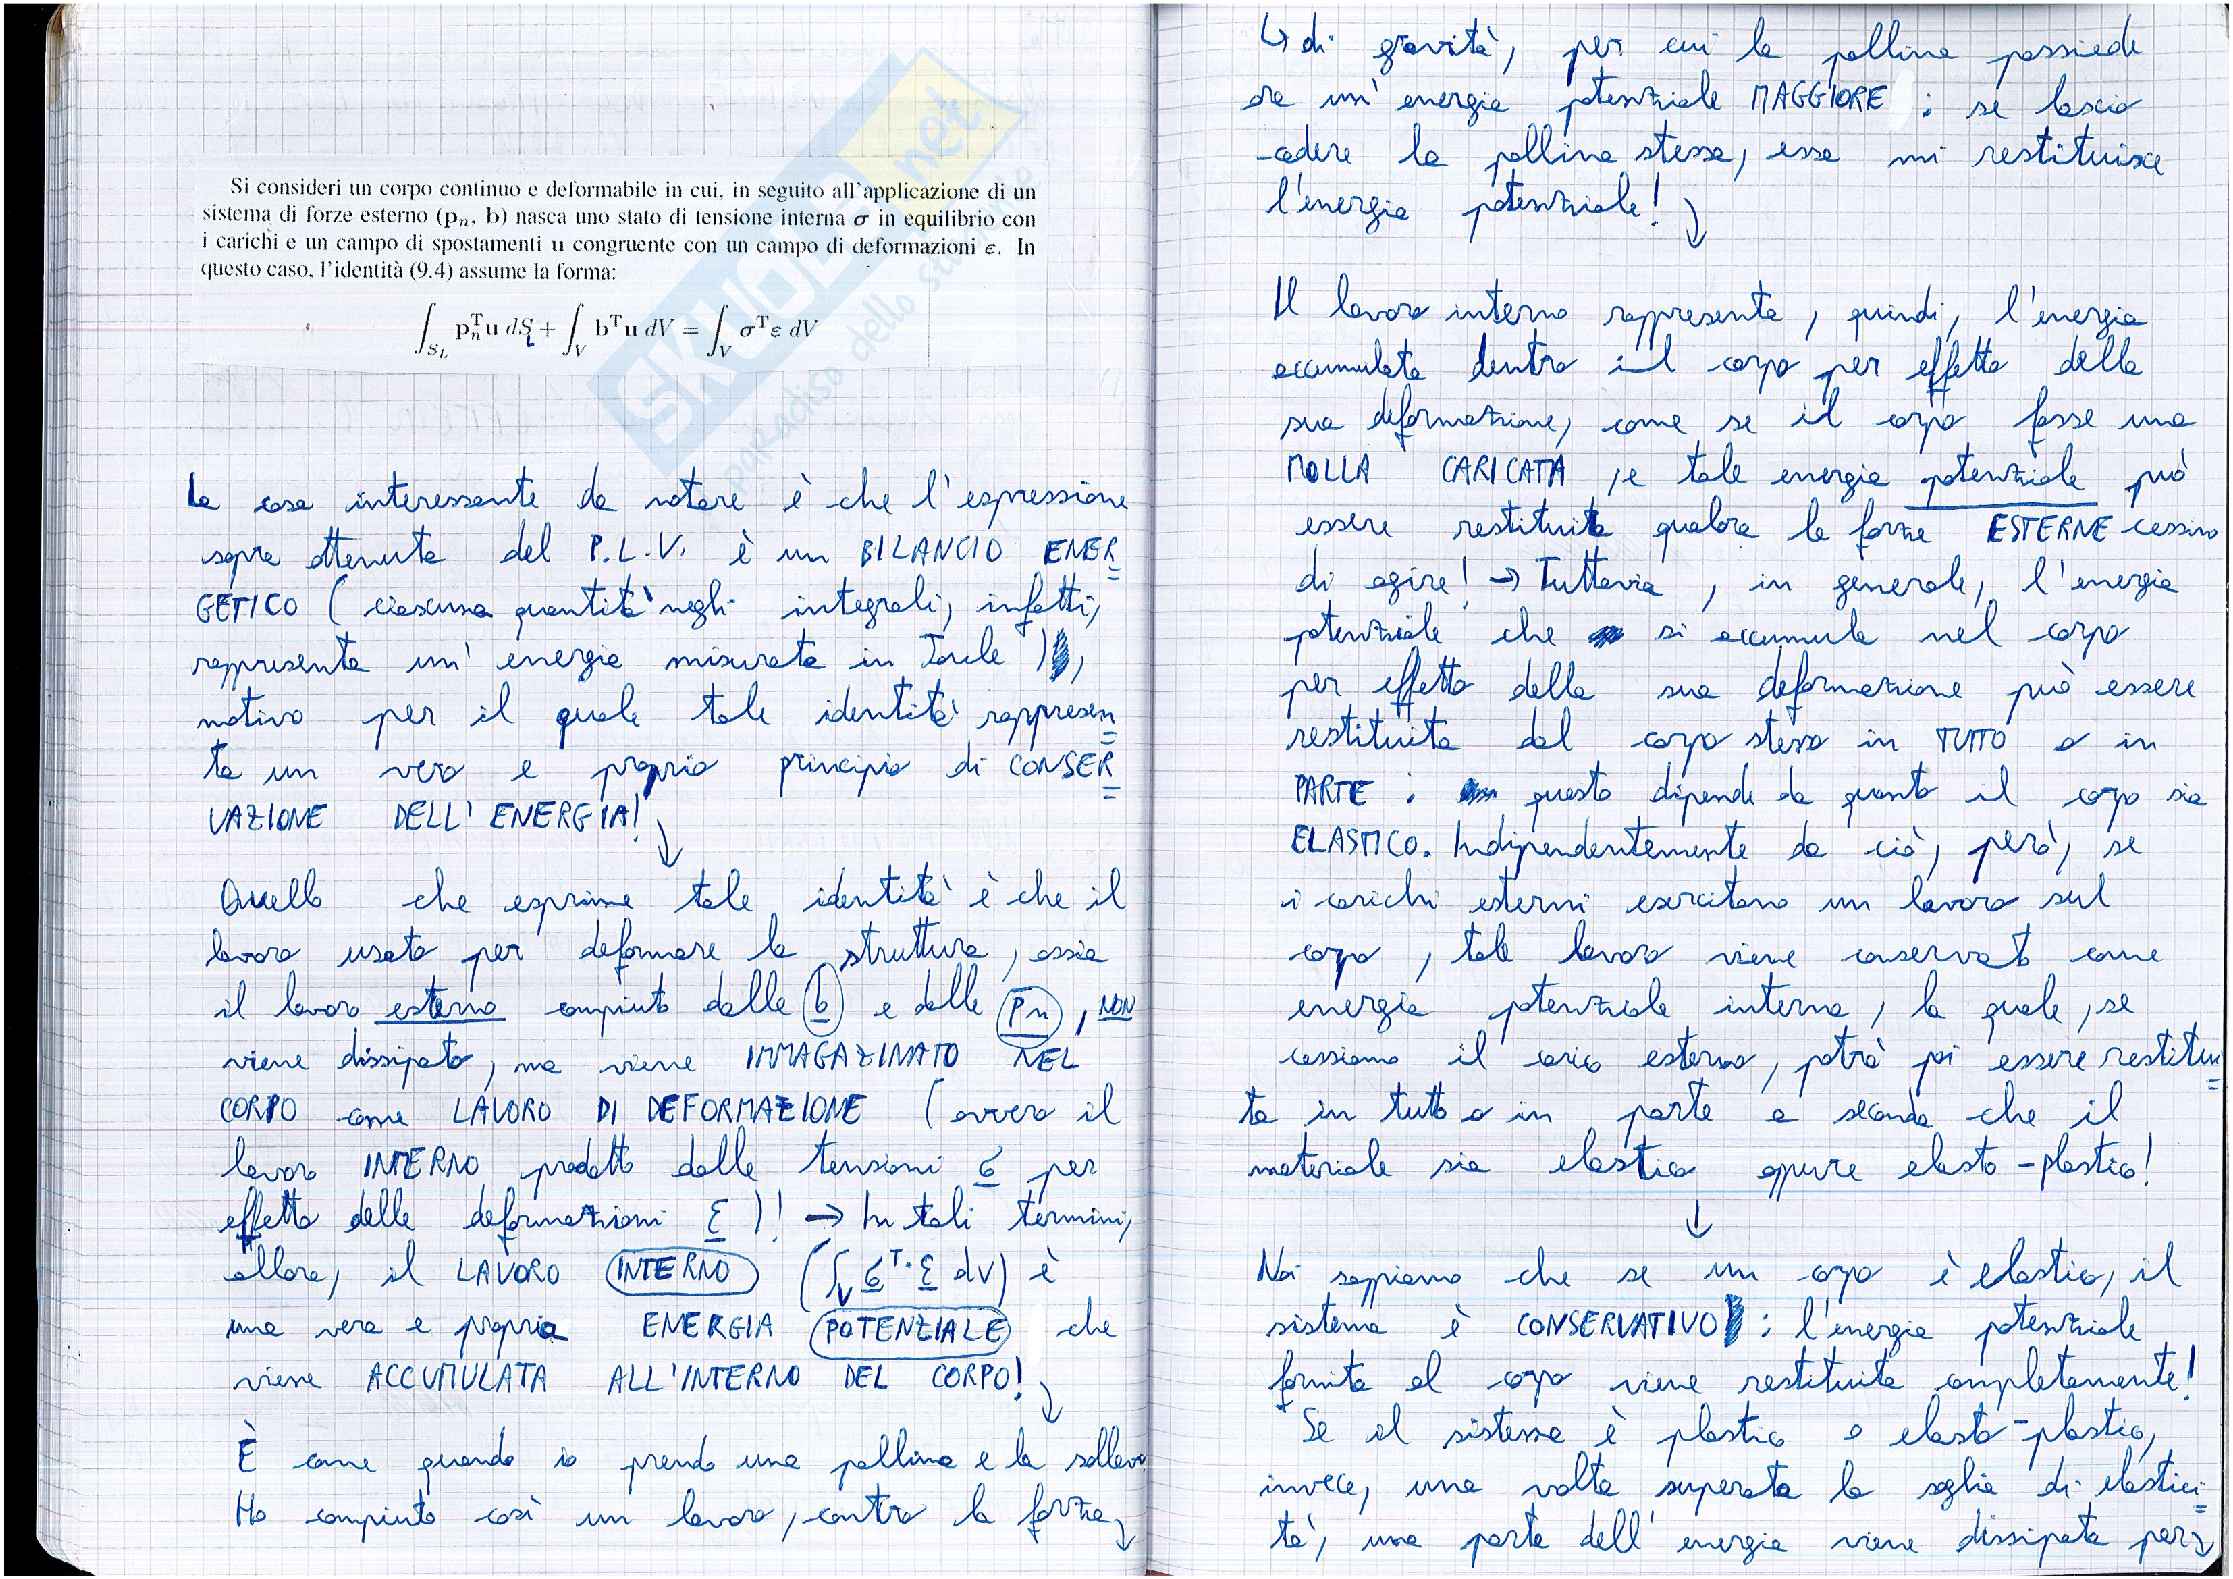 Si consideri un corpo continuo e deformabile in cui, in seguito all'applicazione di un
sistema di forze esterno (pₙ, b) nasca uno stato di tensione interna σ in equilibrio con
i carichi e un campo di spostamenti u congruente con un campo di deformazioni ε. In
questo caso, l'identità (9.4) assume la forma:
∫_{S_L} pₙᵀu dS_L + ∫_V bᵀu dV = ∫_V σᵀε dV
SKUOLA.net
paradiso dello studente
La cosa interessante da notare è che l'espressione
sopra ottenuta del P.L.V. è un BILANCIO ENER
GETICO (ciascuna quantità negli integrali, infatti,
rappresenta un'energia misurata in Joule),
motivo per il quale tale identità rappresen
ta un vero e proprio principio di CONSER
VAZIONE DELL'ENERGIA!
Quello che esprime tale identità è che il
lavoro usato per deformare la struttura, ossia
il lavoro esterno compiuto dalle b e dalle pn, NON
viene dissipato, ma viene IMMAGAZINATO NEL
CORPO come LAVORO DI DEFORMAZIONE (ovvero il
lavoro INTERNO prodotto dalle tensioni σ per
effetto delle deformazioni ε)! → In tali termini,
allora, il LAVORO INTERNO (∫_V σᵀ·ε dV) è
una vera e propria ENERGIA POTENZIALE che
viene ACCUMULATA ALL'INTERNO DEL CORPO!
È come quando io prendo una pallina e la sollevo
Ho compiuto così un lavoro, contro la forza
↳ di gravità, per cui la pallina possiede
ora un'energia potenziale MAGGIORE: se lascio
cadere la pallina stessa, essa mi restituisce
l'energia potenziale!
Il lavoro interno rappresenta, quindi, l'energia
accumulata dentro il corpo per effetto della
sua deformazione, come se il corpo fosse una
MOLLA CARICATA, e tale energia potenziale può
essere restituita qualora le forze ESTERNE cessino
di agire! → Tuttavia, in generale, l'energia
potenziale che si accumula nel corpo
per effetto della sua deformazione può essere
restituita dal corpo stesso in TUTTO o in
PARTE: questo dipende da quanto il corpo sia
ELASTICO. Indipendentemente da ciò, però, se
i carichi esterni esercitano un lavoro sul
corpo, tale lavoro viene conservato come
energia potenziale interna, la quale, se
cessiamo il carico esterno, potrà poi essere restitui
ta in tutto o in parte a seconda che il
materiale sia elastico oppure elasto-plastico!
↓
Noi sappiamo che se un corpo è elastico, il
sistema è CONSERVATIVO: l'energia potenziale
fornita al corpo viene restituita completamente!
Se il sistema è plastico o elasto-plastico,
invece, una volta superata la soglia di elastici
tà, una parte dell'energia viene dissipata per